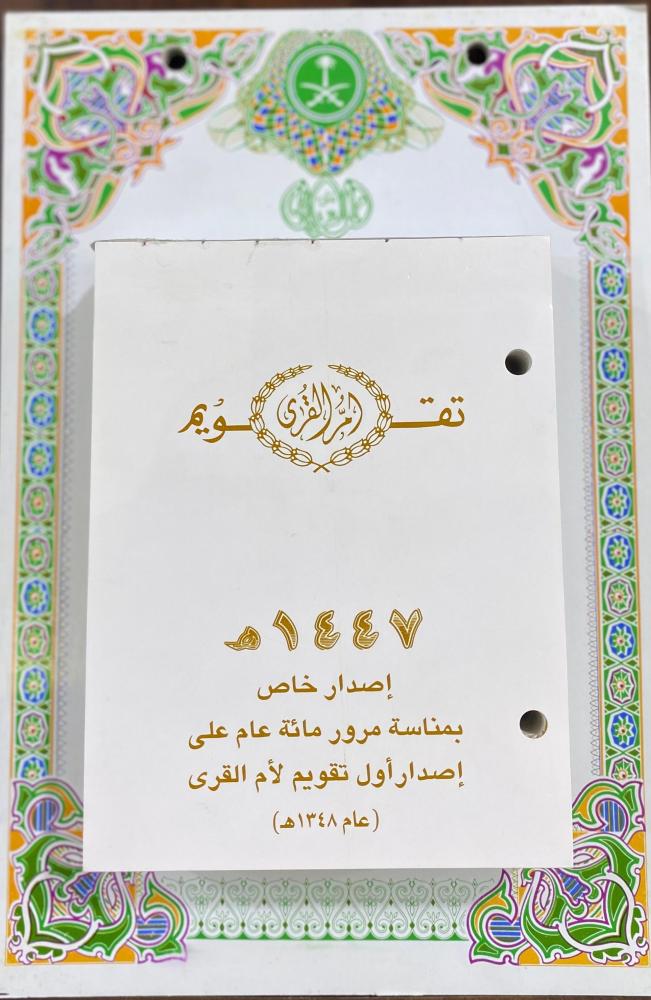 تقـــويم
أم القرى
١٤٤٧هـ
إصدار خاص
بمناسة مرور مائة عام على
إصدار أول تقويم لأم القرى
(عام ١٣٤٨هـ)